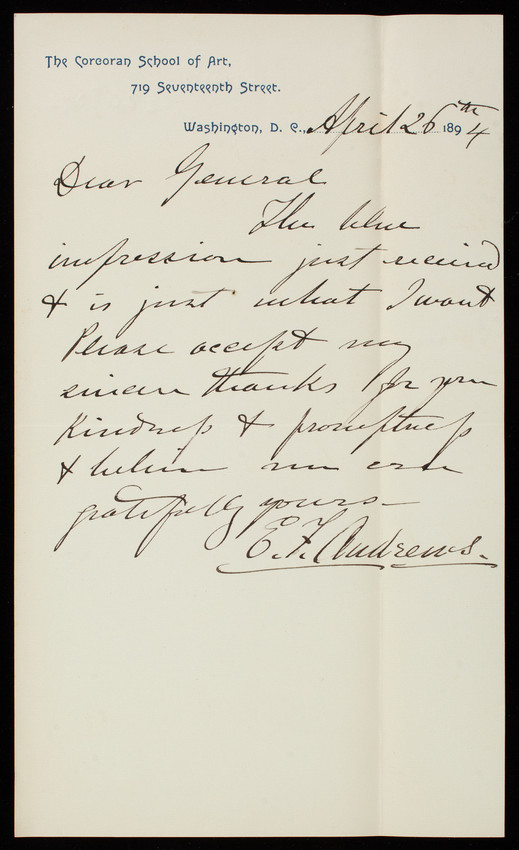 The Corcoran School of Art,
719 Seventeenth Street.
Washington, D. C., April 26th 1894
Dear General
The blue
impression just received
& is just what I want
Please accept my
sincere thanks for your
Kindness & promptness
& believe me ever
gratefully yours—
E. F. Andrews.